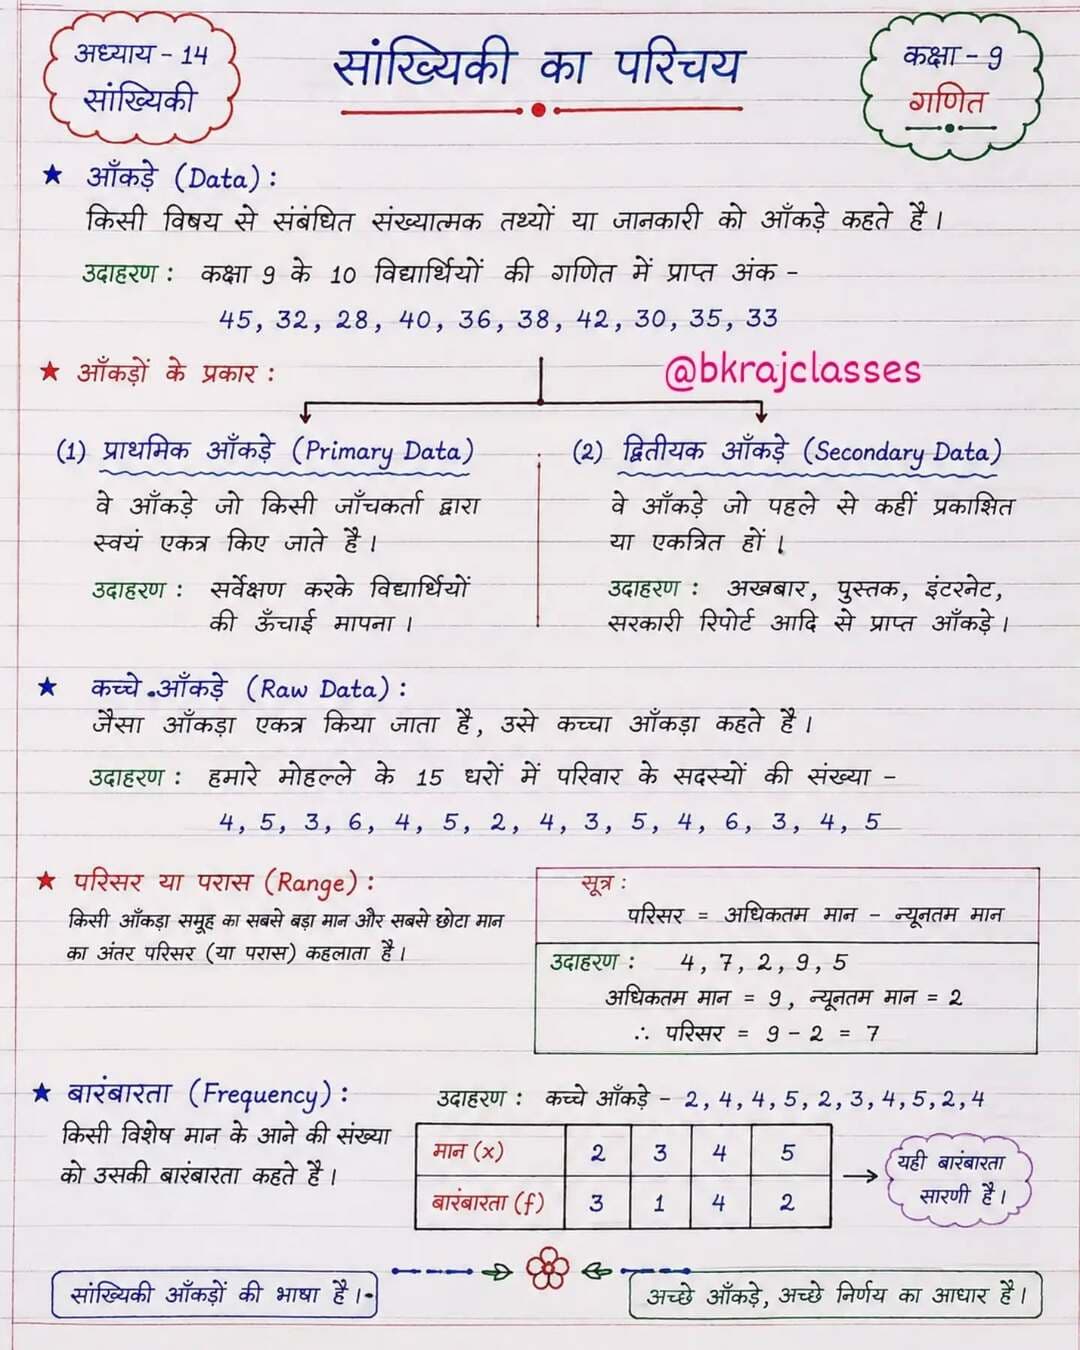 अध्याय - 14
सांख्यिकी
सांख्यिकी का परिचय
कक्षा - 9
गणित
★ आँकड़े (Data) :
किसी विषय से संबंधित संख्यात्मक तथ्यों या जानकारी को आँकड़े कहते है।
उदाहरण : कक्षा 9 के 10 विद्यार्थियों की गणित में प्राप्त अंक -
45, 32, 28, 40, 36, 38, 42, 30, 35, 33
★ आँकड़ों के प्रकार :
@bkrajclasses
(1) प्राथमिक आँकड़े (Primary Data)
वे आँकड़े जो किसी जाँचकर्ता द्वारा
स्वयं एकत्र किए जाते है।
उदाहरण : सर्वेक्षण करके विद्यार्थियों
की ऊँचाई मापना।
(2) द्वितीयक आँकड़े (Secondary Data)
वे आँकड़े जो पहले से कहीं प्रकाशित
या एकत्रित हों।
उदाहरण : अखबार, पुस्तक, इंटरनेट,
सरकारी रिपोर्ट आदि से प्राप्त आँकड़े।
★ कच्चे आँकड़े (Raw Data) :
जैसा आँकड़ा एकत्र किया जाता है, उसे कच्चा आँकड़ा कहते है।
उदाहरण : हमारे मोहल्ले के 15 घरों में परिवार के सदस्यों की संख्या -
4, 5, 3, 6, 4, 5, 2, 4, 3, 5, 4, 6, 3, 4, 5
★ परिसर या परास (Range) :
किसी आँकड़ा समूह का सबसे बड़ा मान और सबसे छोटा मान
का अंतर परिसर (या परास) कहलाता है।
सूत्र :
परिसर = अधिकतम मान - न्यूनतम मान
उदाहरण : 4, 7, 2, 9, 5
अधिकतम मान = 9, न्यूनतम मान = 2
∴ परिसर = 9 - 2 = 7
★ बारंबारता (Frequency) :
किसी विशेष मान के आने की संख्या
को उसकी बारंबारता कहते है।
उदाहरण : कच्चे आँकड़े - 2, 4, 4, 5, 2, 3, 4, 5, 2, 4
मान (x) 2 3 4 5
बारंबारता (f) 3 1 4 2
यही बारंबारता
सारणी है।
सांख्यिकी आँकड़ों की भाषा है।
अच्छे आँकड़े, अच्छे निर्णय का आधार है।